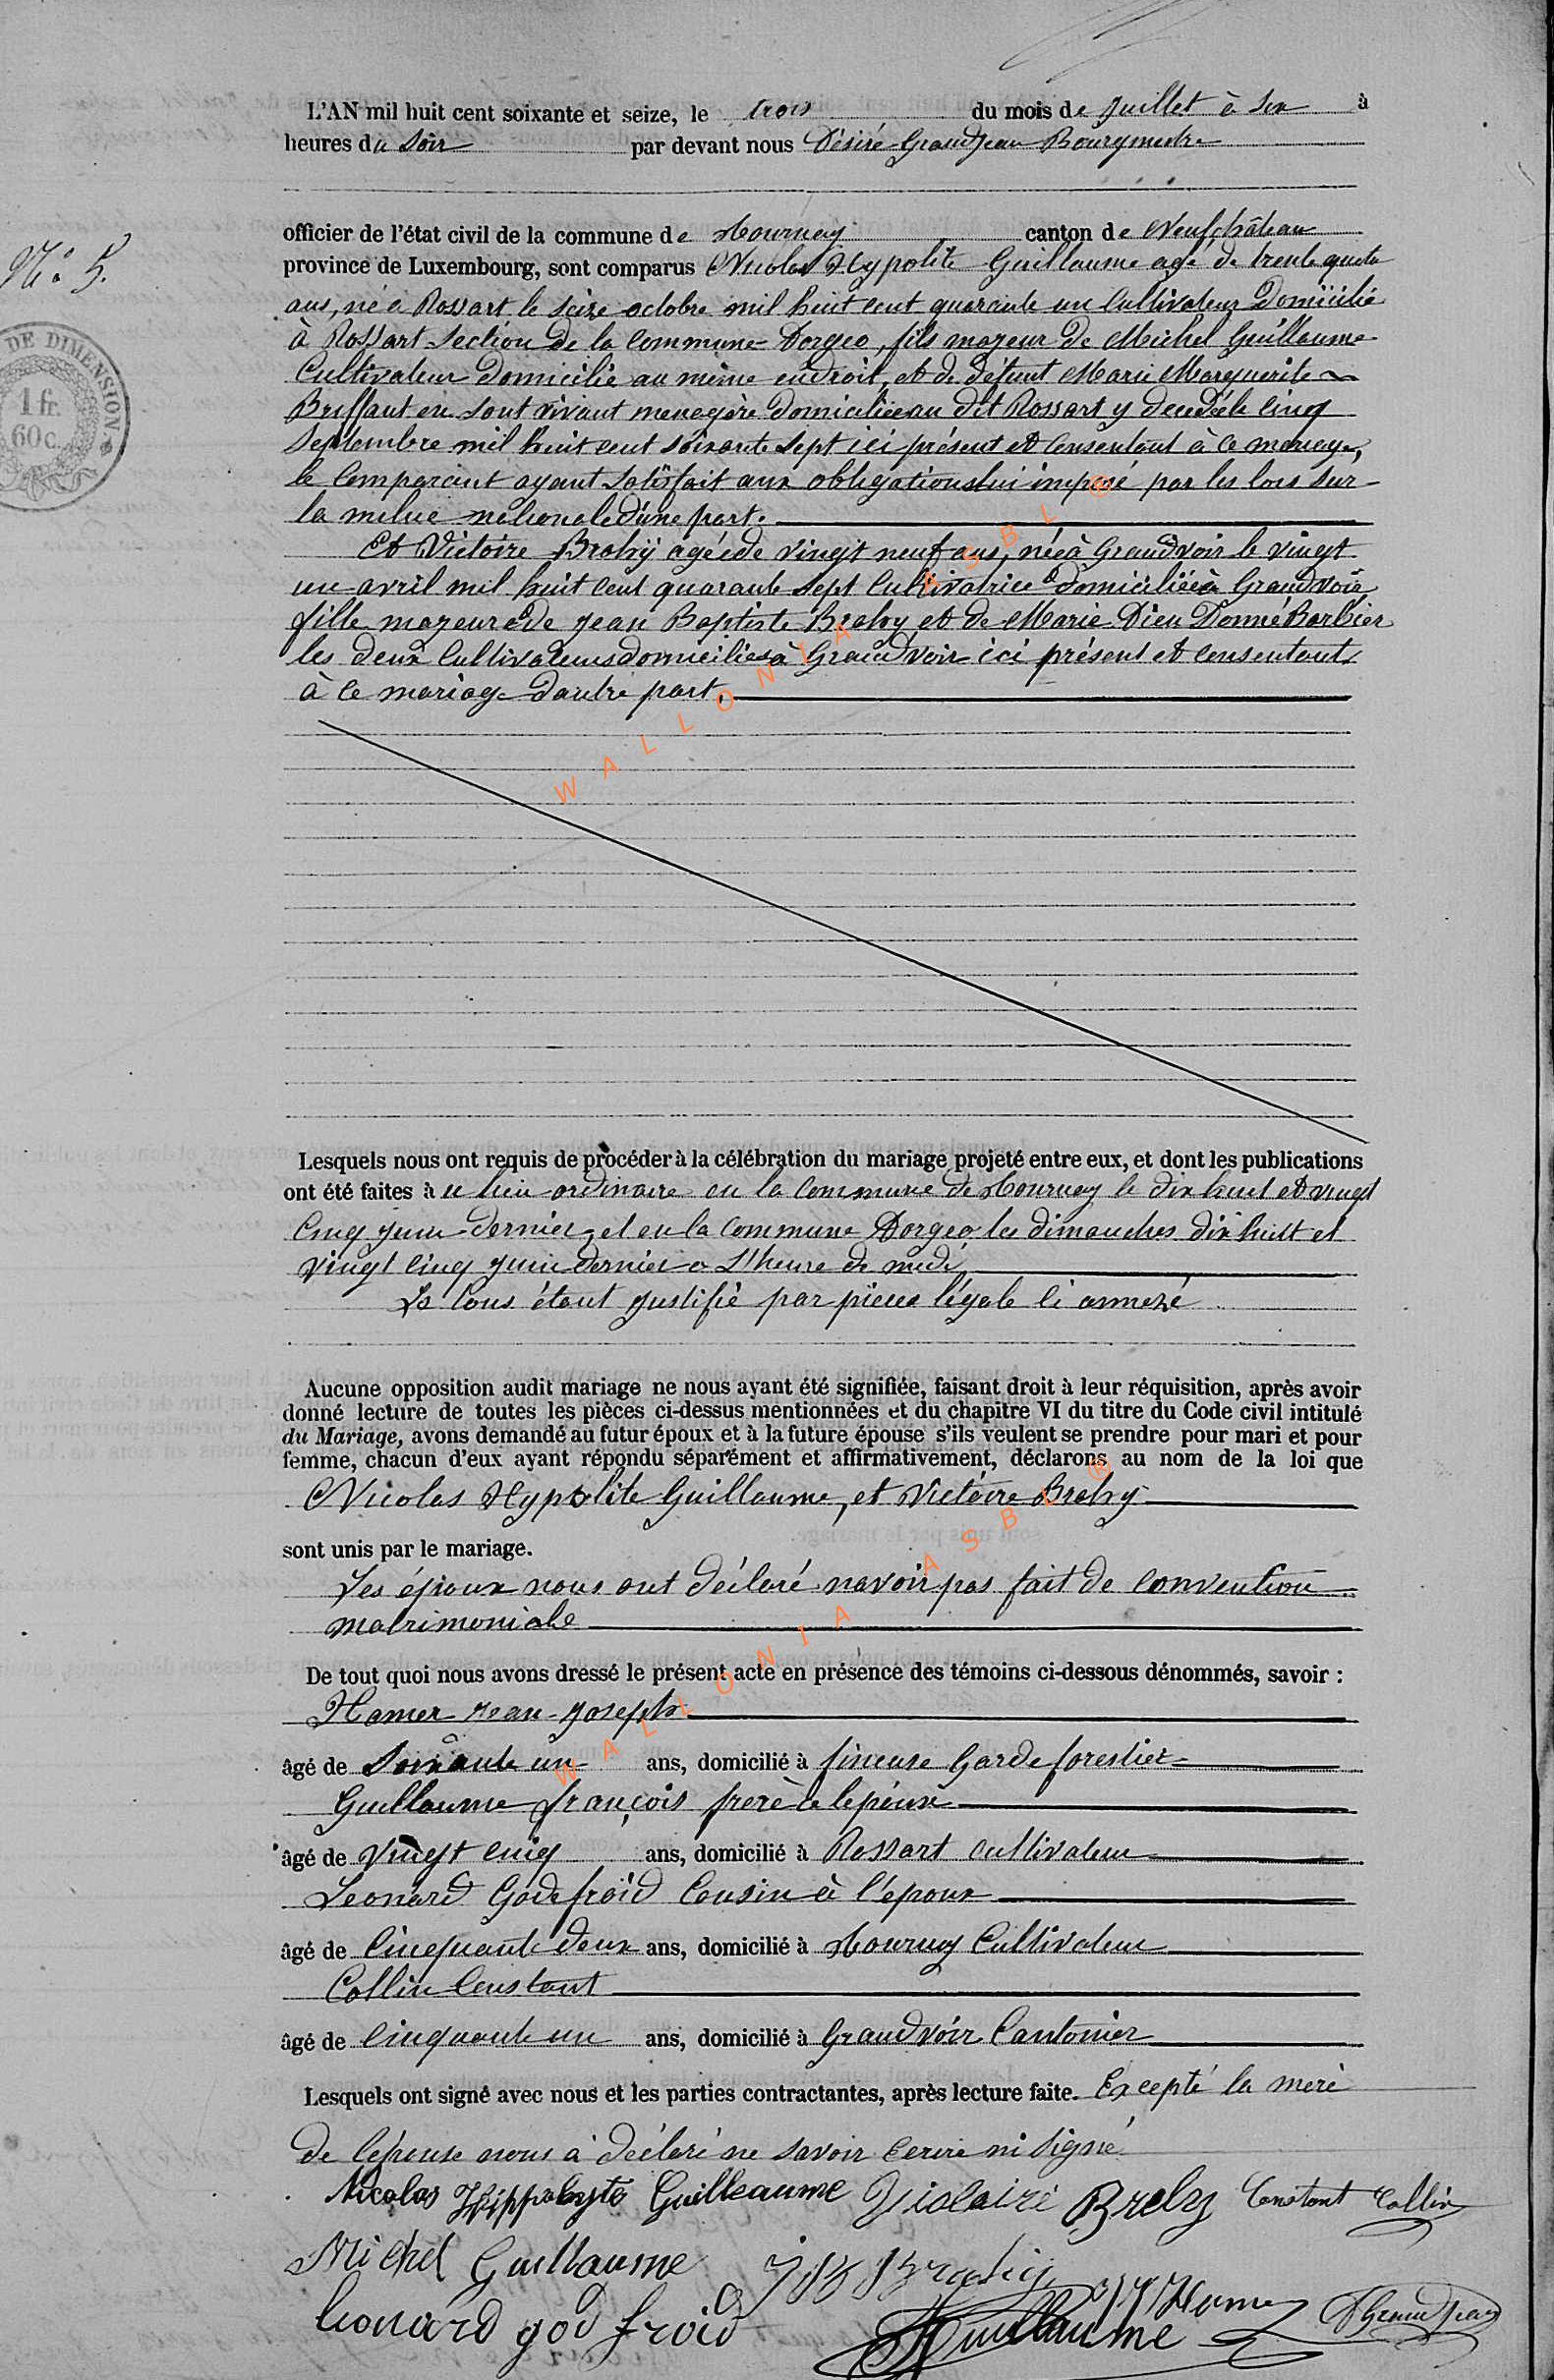 L'AN mil huit cent soixante et seize, le trois du mois de Juillet à six à
heures du Soir par devant nous Désiré Grandjean Bourgmestre
officier de l'état civil de la commune de Tournay canton de Neufchâteau
province de Luxembourg, sont comparus Nicolas Hypolite Guillaume agé de trente quatre
N.° 5.
ans, né à Rossart le seize octobre mil huit cent quarante un Cultivateur Domicilié
à Rossart Section de la Commune Dorgeo, fils majeur de Michel Guillaume
DE DIMENSION
1 fr.
60 c.
Cultivateur Domicilié au même endroit, et de défunt Marie Marguerite
en sont vivant menagère domiciliée au dit Rossart y decedée le cinq
Septembre mil huit cent soixante sept ici présent et Consentant à ce mariage,
le Comparant ayant satisfait aux obligations lui imposé par les lois sur
la milice nationale d'une part.
Et Victoire Brahy agée de vingt neuf ans, née à Grandvoir le vingt
un avril mil huit cent quarante sept Cultivatrice domiciliée à Grandvoir
fille majeure de Jean Baptiste Brahy et de Marie Dieu Donné Barbier
les deux Cultivateurs domiciliés à Grandvoir ici présent et Consentant
à ce mariage dautre part.
WALLONIA ASBL ®
Lesquels nous ont requis de procéder à la célébration du mariage projeté entre eux, et dont les publications
ont été faites à ce lieu ordinaire en la Commune de Tournay le dix huit et vingt
Cinq Juin dernier, et en la Commune Dorgeo les dimanches dix huit et
vingt cinq Juin dernier a L'heure de midi,
étant Justifié par pièce légale ci annexé
Aucune opposition audit mariage ne nous ayant été signifiée, faisant droit à leur réquisition, après avoir
donné lecture de toutes les pièces ci-dessus mentionnées et du chapitre VI du titre du Code civil intitulé
du Mariage, avons demandé au futur époux et à la future épouse s'ils veulent se prendre pour mari et pour
femme, chacun d'eux ayant répondu séparément et affirmativement, déclarons au nom de la loi que
Nicolas Hypolite Guillaume, et Victoire Brahy
sont unis par le mariage.
Les époux nous ont déclaré navoir pas fait de convention
matrimoniale
WALLONIA ASBL ®
De tout quoi nous avons dressé le présent acte en présence des témoins ci-dessous dénommés, savoir :
Hamer Jean Joseph
âgé de Soixante un ans, domicilié à fineuse Garde forestier
Guillaume françois frere à lepoux
âgé de vingt cinq ans, domicilié à Rossart Cultivateur
Leonard Godefroid Cousin à l'epoux
âgé de Cinquante deux ans, domicilié à Tournay Cultivateur
Collin Constant
âgé de Cinquante un ans, domicilié à Grandvoir Cantonier
Lesquels ont signé avec nous et les parties contractantes, après lecture faite. Excepté la mere
de lépouse nous à déclaré ne savoir Ecrire ni signé
Nicolas Hippolyte Guilleaume Victoire Brahy Constant Collin
Michel Guillaume J B Brahy J J Hamer
Léonard god froid Guillaume DGrandjean